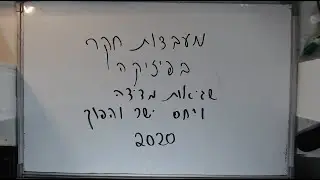 מעבדות חקר
בפיזיקה
שגיאות מדידה
ויחס ישר והפוך
2020